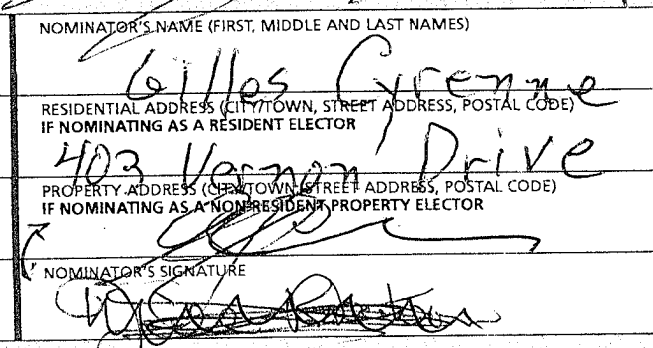 NOMINATOR'S NAME (FIRST, MIDDLE AND LAST NAMES)
Gilles Cyrenne
RESIDENTIAL ADDRESS (CITY/TOWN, STREET ADDRESS, POSTAL CODE)
IF NOMINATING AS A RESIDENT ELECTOR
403 Vernon Drive
PROPERTY ADDRESS (CITY/TOWN, STREET ADDRESS, POSTAL CODE)
IF NOMINATING AS A NON-RESIDENT PROPERTY ELECTOR
NOMINATOR'S SIGNATURE